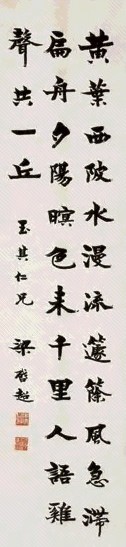 黃葉西陂水漫流籧篨風急滯
扁舟夕陽暝色來千里人語雞
聲共一丘
玉其仁兄
梁啓超